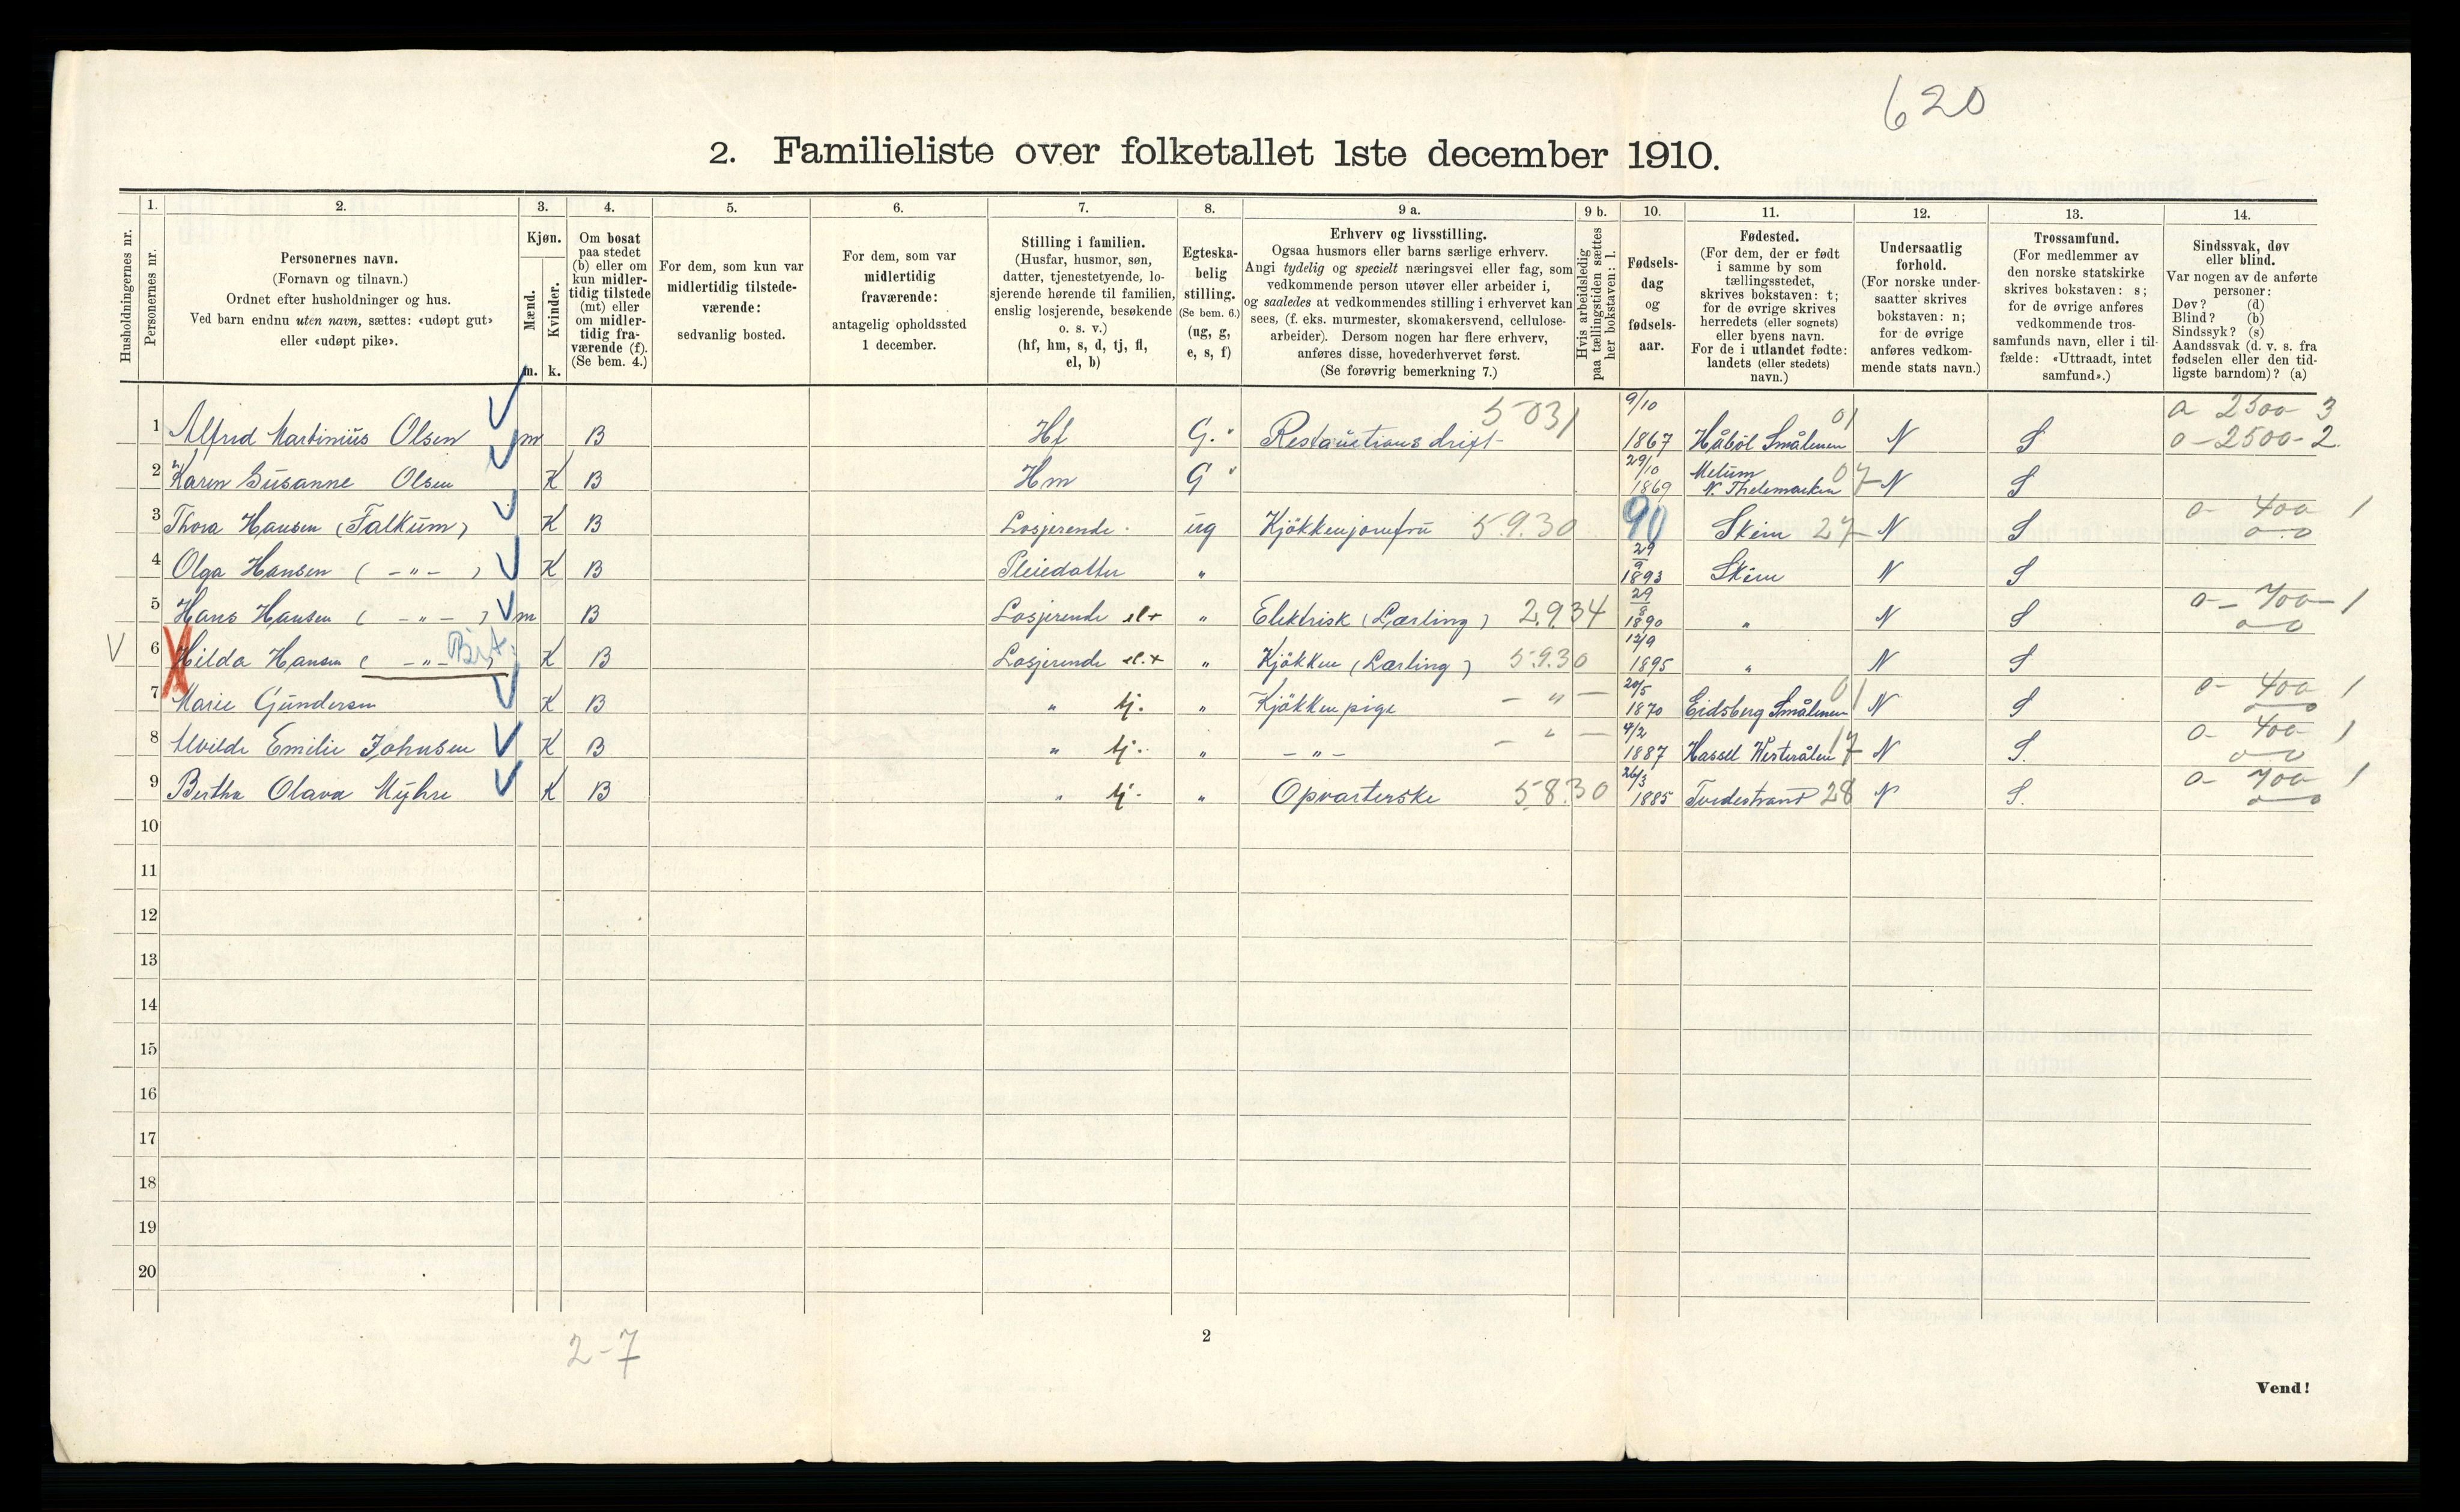 620
2. Familieliste over folketallet 1ste december 1910.
1. 2. 3. 4. 5. 6. 7. 8. 9 a. 9 b. 10. 11. 12. 13. 14.
Husholdningernes nr.
Personernes nr.
Personernes navn.
(Fornavn og tilnavn.)
Ordnet efter husholdninger og hus.
Ved barn endnu uten navn, sættes: «udøpt gut»
eller «udøpt pike».
Kjøn.
Mænd.
Kvinder.
m. k.
Om bosat
paa stedet
(b) eller om
kun midler-
tidig tilstede
(mt) eller
om midler-
tidig fra-
værende (f).
(Se bem. 4.)
For dem, som kun var
midlertidig tilstede-
værende:
sedvanlig bosted.
For dem, som var
midlertidig
fraværende:
antagelig opholdssted
1 december.
Stilling i familien.
(Husfar, husmor, søn,
datter, tjenestetyende, lo-
sjerende hørende til familien,
enslig losjerende, besøkende
o. s. v.)
(hf, hm, s, d, tj, fl,
el, b)
Egteska-
belig
stilling.
(Se bem. 6.)
(ug, g,
e, s, f)
Erhverv og livsstilling.
Ogsaa husmors eller barns særlige erhverv.
Angi tydelig og specielt næringsvei eller fag, som
vedkommende person utøver eller arbeider i,
og saaledes at vedkommendes stilling i erhvervet kan
sees, (f. eks. murmester, skomakersvend, cellulose-
arbeider). Dersom nogen har flere erhverv,
anføres disse, hovederhvervet først.
(Se forøvrig bemerkning 7.)
Hvis arbeidsledig
paa tællingstiden sættes
her bokstaven: l.
Fødsels-
dag
og
fødsels-
aar.
Fødested.
(For dem, der er født
i samme by som
tællingsstedet,
skrives bokstaven: t;
for de øvrige skrives
herredets (eller sognets)
eller byens navn.
For de i utlandet fødte:
landets (eller stedets)
navn.)
Undersaatlig
forhold.
(For norske under-
saatter skrives
bokstaven: n;
for de øvrige
anføres vedkom-
mende stats navn.)
Trossamfund.
(For medlemmer av
den norske statskirke
skrives bokstaven: s;
for de øvrige anføres
vedkommende tros-
samfunds navn, eller i til-
fælde: «Uttraadt, intet
samfund».)
Sindssvak, døv
eller blind.
Var nogen av de anførte
personer:
Døv? (d)
Blind? (b)
Sindssyk? (s)
Aandssvak (d. v. s. fra
fødselen eller den tid-
ligste barndom)? (a)
5031 9/10 01 a 2500 3
1 Alfred Martinius Olsen m B Hf G. Restautions drift 1867 Håböl Smålenen N S 0-2500-2
2 Karen Susanne Olsen K B Hm G 29/10 1869 Melum N. Thelemarken 07 N S
3 Thora Hansen (Falkum) K B Losjerende ug Kjökkenjomfru 5.9.30 90 Skien 27 N S 0- 400 1
4 Olga Hansen ( -"- ) K B Pleiedatter " 29/9 1893 Skien N S
5 Hans Hansen ( -"- ) m B Losjerende el+ " Elektrisk (Lærling) 2.9.34 29/8 1890 " N S 0- 700-1
V 6 Hilda Hansen ( -"- ) K B Losjerende el.+ " Kjökken (Lærling) 5.9.30 12/9 1895 " N S
7 Marie Gundersen K B " tj. " Kjökkenpige -"- 20/5 1870 Eidsberg Smålenen 01 N S 0- 400 1
8 Alvilde Emilie Johnsen K B " tj. " -"- 4/2 1887 Hassel Westerålen 17 N S. 0- 400 1
9 Bertha Olava Myhre K B " tj. " Opvarterske 5.8.30 26/3 1885 Tvedestrand 28 N S. 0- 700 1
10
11
12
13
14
15
16
17
18
19
20
2-7
2
Vend!